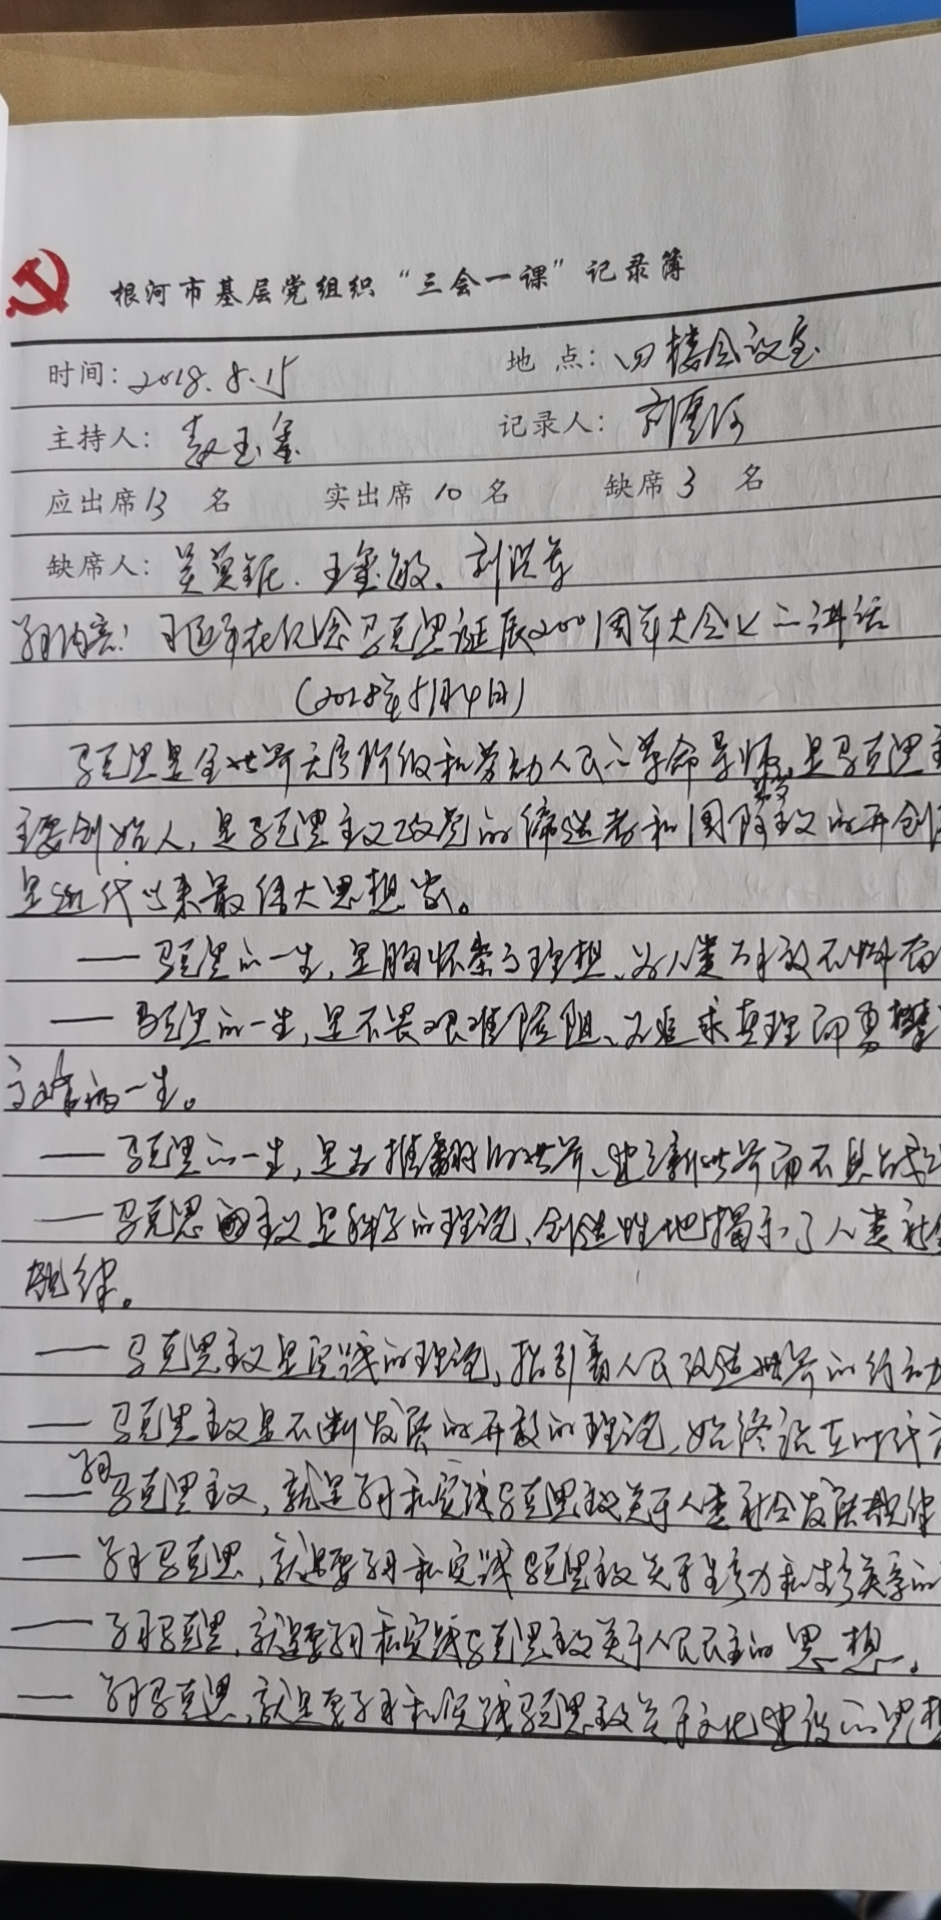 根河市基层党组织“三会一课”记录簿
时间：2018.8.15 地点：四楼会议室
主持人：赵玉玺 记录人：刘
应出席13名 实出席10名 缺席3名
缺席人：吴、王敏、刘洪
学习内容：习近平在纪念马克思诞辰200周年大会上的讲话
(2018年5月4日)
马克思是全世界无产阶级和劳动人民的革命导师，是马克思主
主要创始人，是马克思主义政党的缔造者和国际共产主义的开创
是近代以来最伟大思想家。
——马克思的一生，是胸怀崇高理想、为人类解放不懈奋
——马克思的一生，是不畏艰难险阻、为追求真理而勇攀
高峰的一生。
——马克思的一生，是为推翻旧世界、建立新世界而不息战
——马克思主义是科学的理论，创造性地揭示了人类社会
规律。
——马克思主义是实践的理论，指引着人民改造世界的行动
——马克思主义是不断发展的开放的理论，始终站在时代前
——学习马克思主义，就是学习和实践马克思主义关于人类社会发展规律
——学习马克思，就是要学习和实践马克思主义关于生产力和生产关系的
——学习马克思，就是要学习和实践马克思主义关于人民民主的思想。
——学习马克思，就是要学习和实践马克思主义关于文化建设的思想